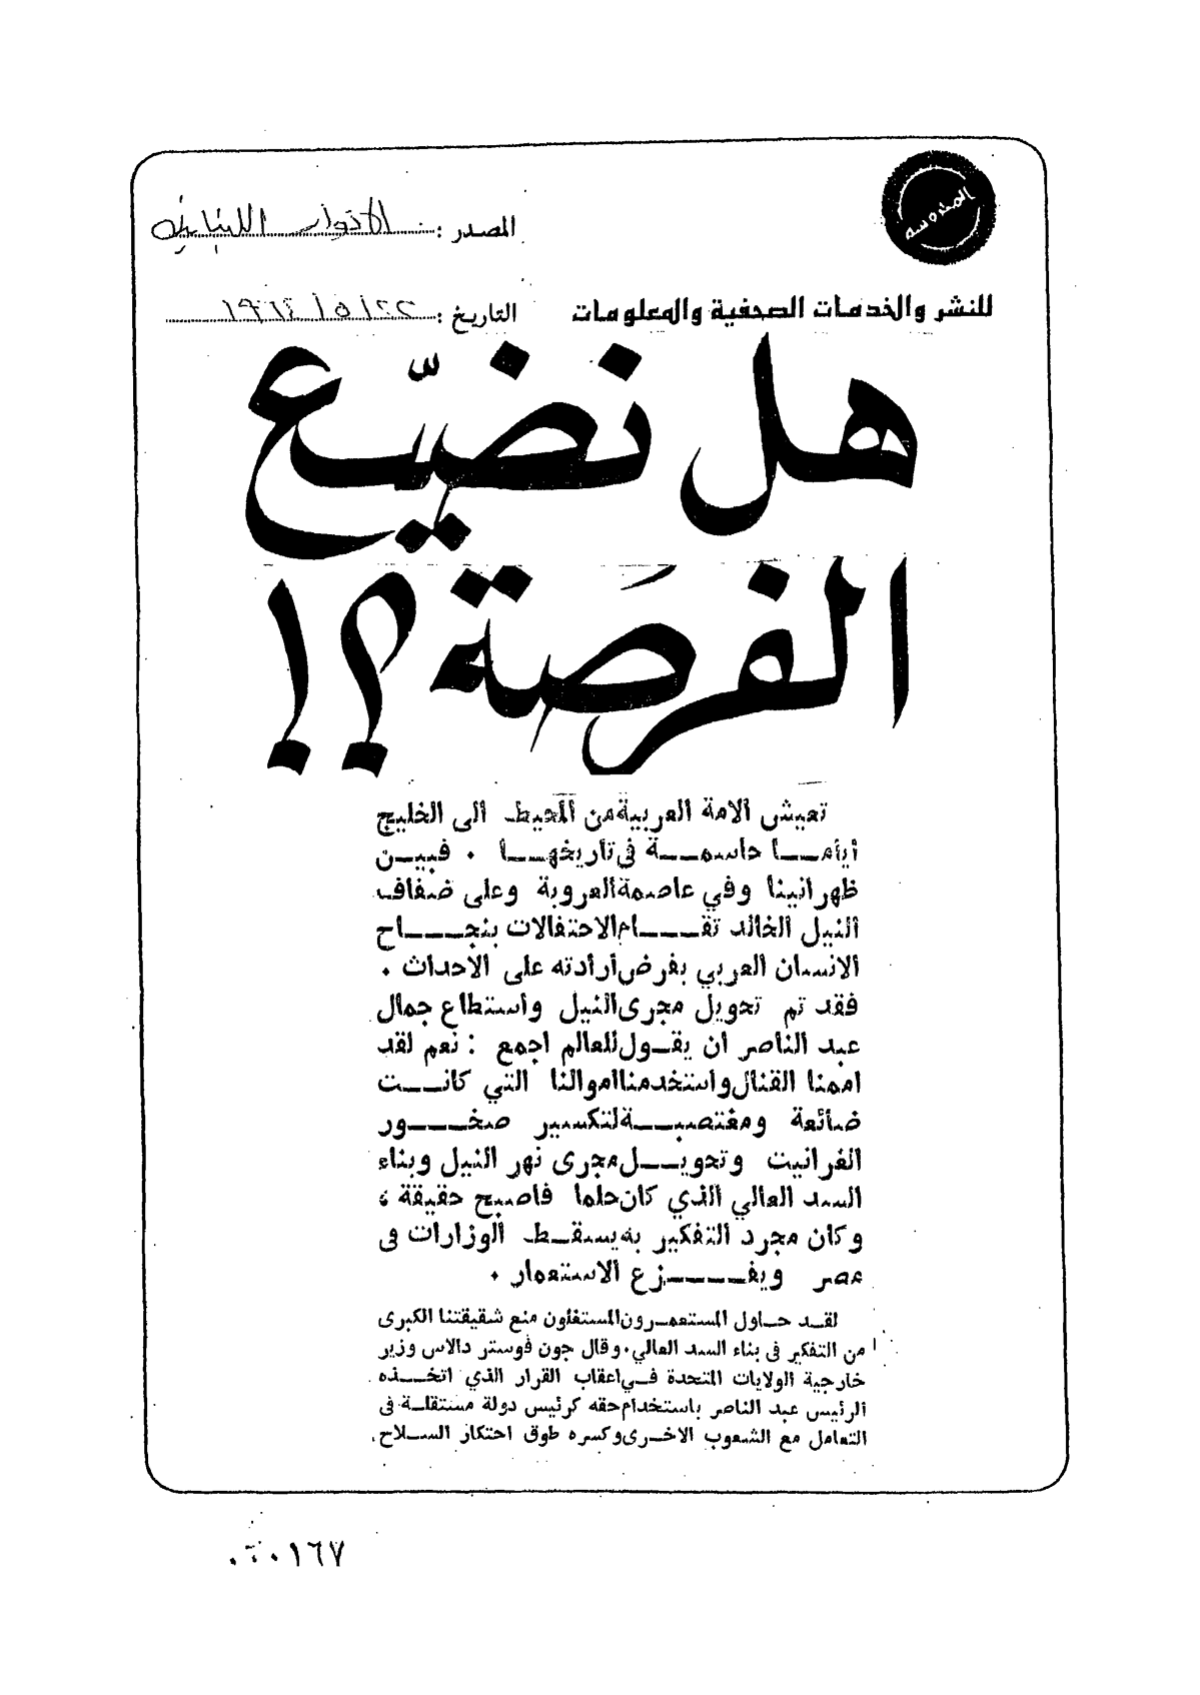 المحروسة
المصدر : الانوار اللبنانية
للنشر والخدمات الصحفية والمعلومات
التاريخ : ٢٢ / ٥ / ١٩٦٤
هل نضيّع
الفرَصة ؟!
تعيش الامة العربية من المحيط الى الخليج
أياما حاسمة في تاريخها . فبين
ظهرانينا وفي عاصمة العروبة وعلى ضفاف
النيل الخالد تقام الاحتفالات بنجاح
الانسان العربي بفرض أرادته على الاحداث .
فقد تم تحويل مجرى النيل واستطاع جمال
عبد الناصر ان يقول للعالم اجمع : نعم لقد
اممنا القنال واستخدمنا اموالنا التي كانت
ضائعة ومغتصبة لتكسير صخور
الغرانيت وتحويل مجرى نهر النيل وبناء
السد العالي الذي كان حلما فاصبح حقيقة ،
وكان مجرد التفكير به يسقط الوزارات في
مصر ويفزع الاستعمار .
لقد حاول المستعمرون المستغلون منع شقيقتنا الكبرى
من التفكير في بناء السد العالي . وقال جون فوستر دالاس وزير
خارجية الولايات المتحدة في اعقاب القرار الذي اتخذه
الرئيس عبد الناصر باستخدام حقه كرئيس دولة مستقلة في
التعامل مع الشعوب الاخرى وكسره طوق احتكار السلاح ،